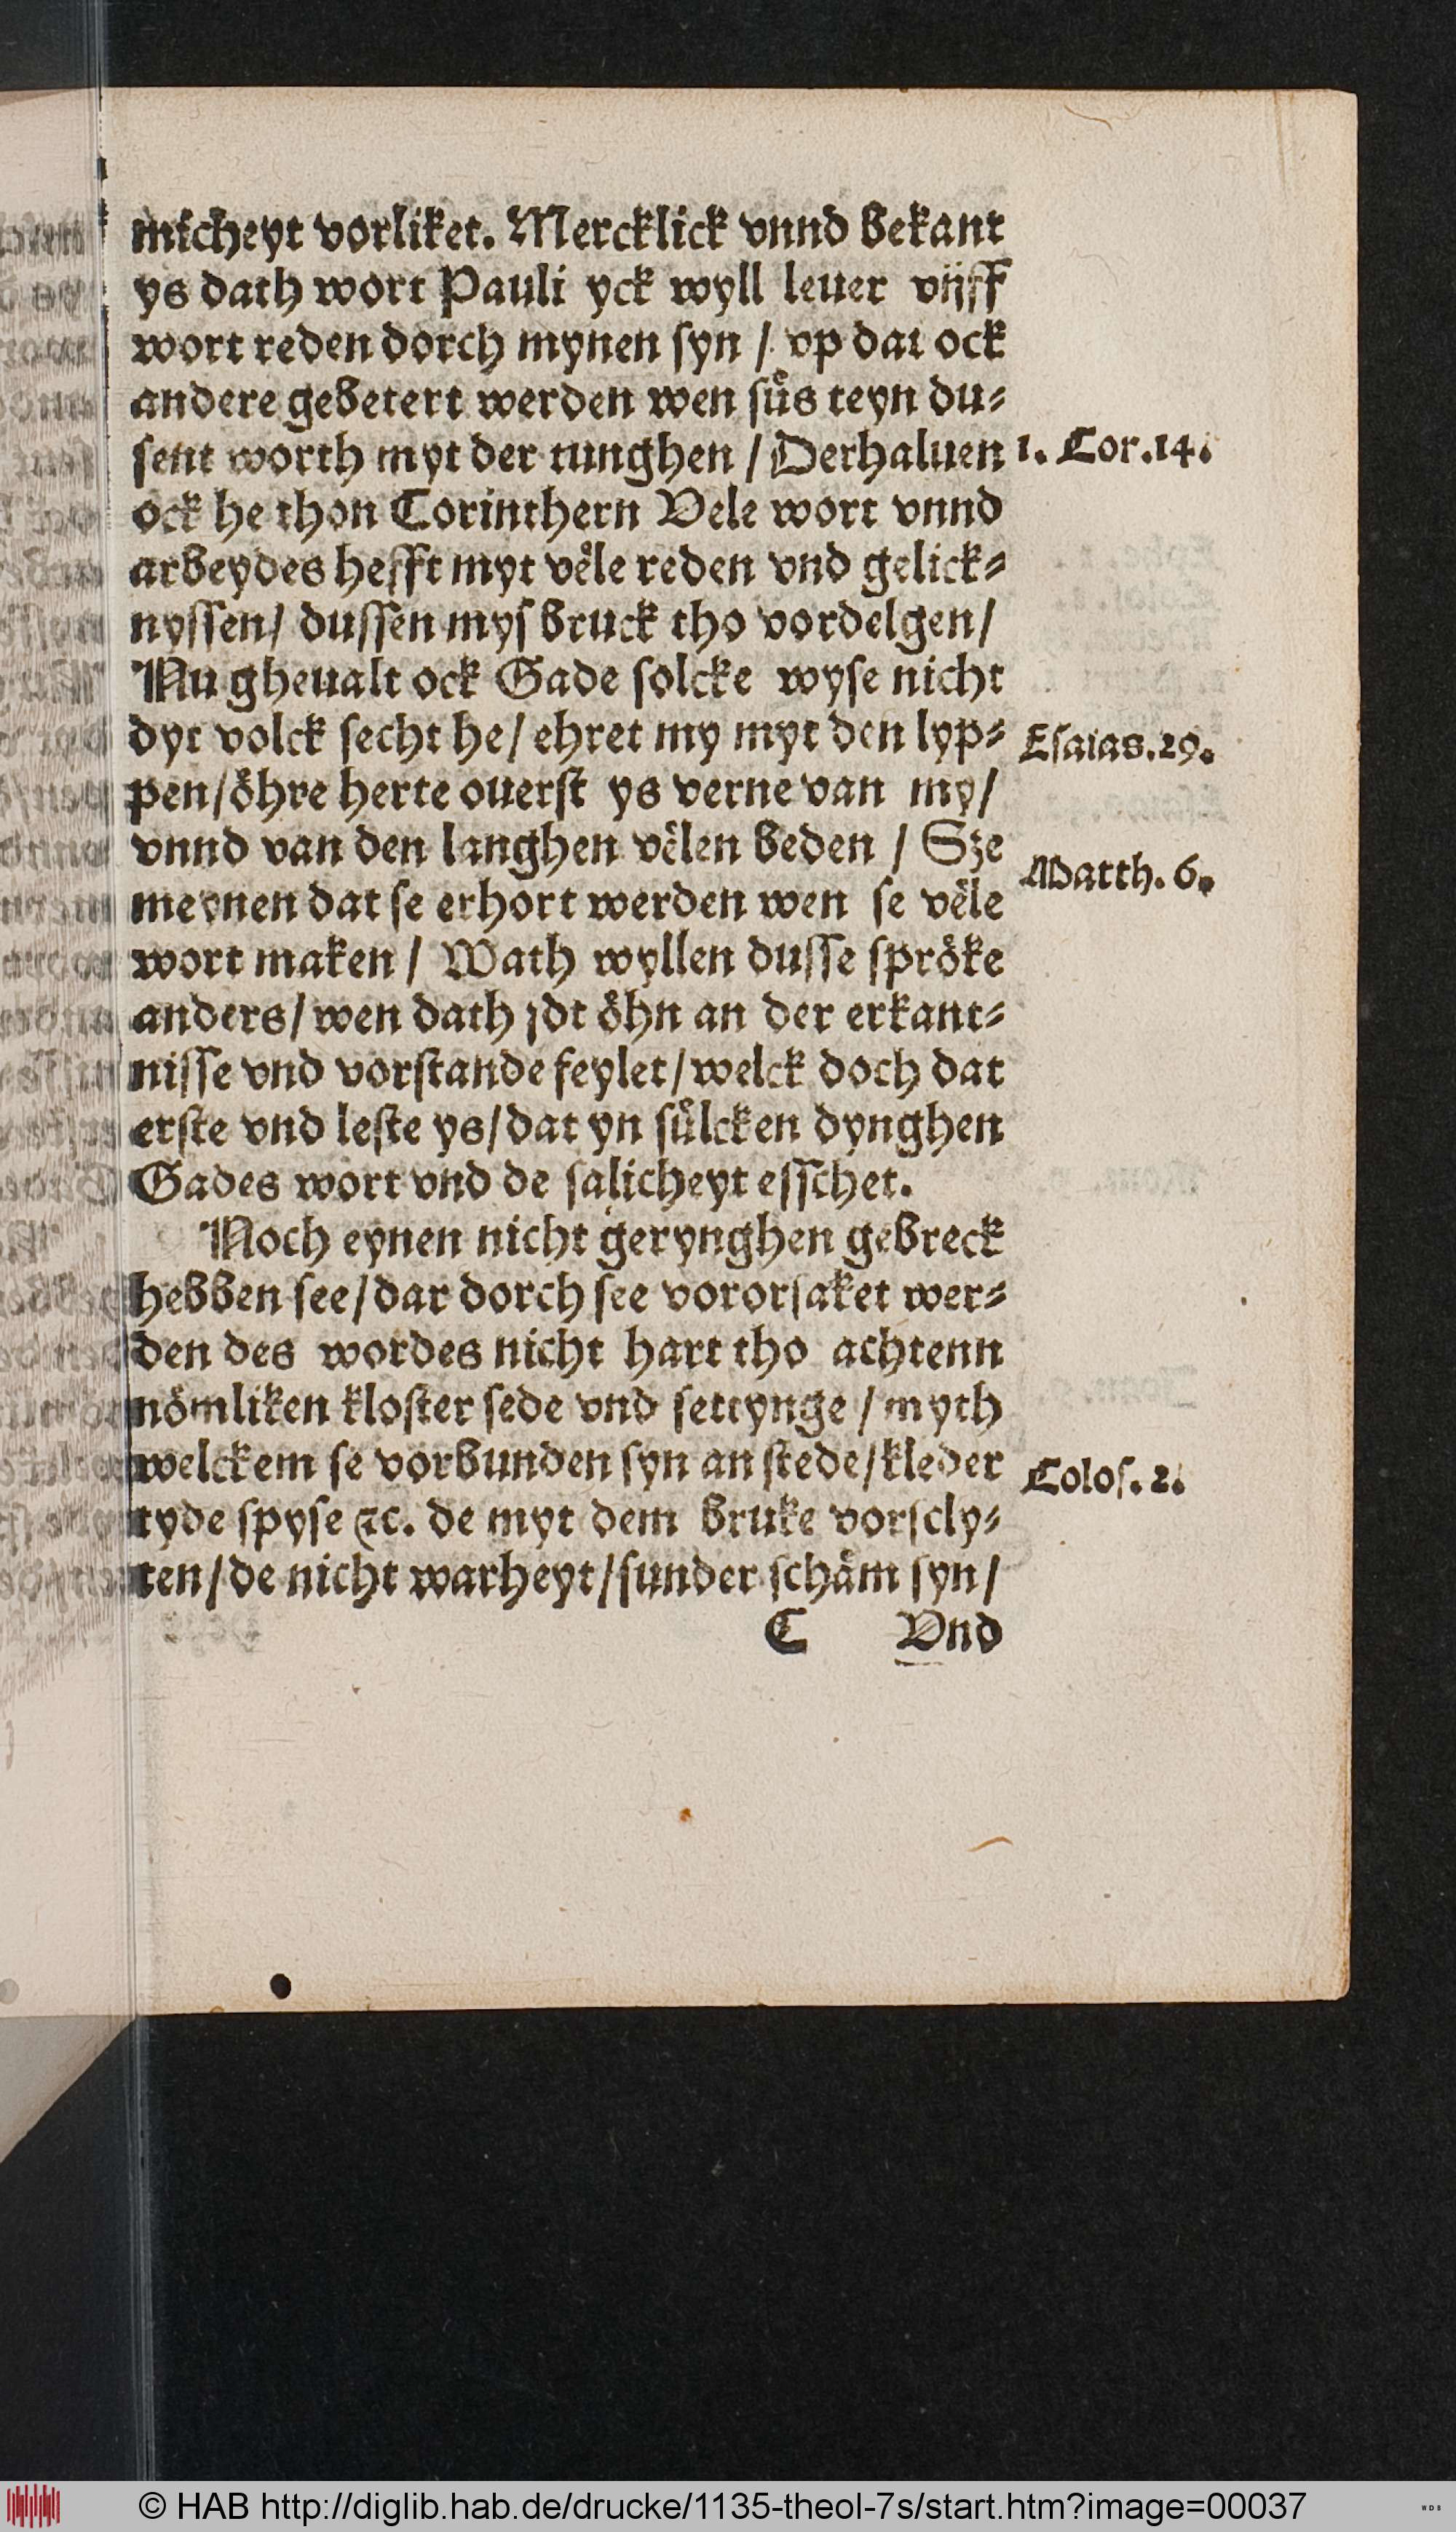 micheyt vorliket. Mercklick vnnd bekant
ys dath wort Pauli yck wyll leuer vijff
wort reden dorch mynen ſyn / vp dat ock
andere gebetert werden wen ſuͤs teyn du⸗
ſent worth myt der tunghen / Derhaluen
1. Cor. 14.
ock he thon Corinthern Vele wort vnnd
arbeydes hefft myt veͤle reden vnd gelick⸗
nyſſen / duſſen myſbruck tho vordelgen /
Nu gheualt ock Gade ſolcke wyſe nicht
dyt volck ſecht he / ehret my myt den lyp⸗
Eſaias. 29.
pen / oͤhre herte ouerſt ys verne van my /
vnnd van den langhen veͤlen beden / Sze
Matth. 6.
meynen dat ſe erhort werden wen ſe veͤle
wort maken / Wath wyllen duſſe ſproͤke
anders / wen dath jdt oͤhn an der erkant⸗
niſſe vnd vorſtande feylet / welck doch dat
erſte vnd leſte ys / dat yn ſuͤlcken dynghen
Gades wort vnd de ſalicheyt eſſchet.
Noch eynen nicht gerynghen gebreck
hebben see / dar dorch see vororſaket wer⸗
den des wordes nicht hart tho achtenn
noͤmliken kloſter ſede vnd ſettynge / myth
welckem ſe vorbunden ſyn an ſtede / kleder
Coloſ. 2.
tyde ſpyſe ꝛc. de myt dem bruke vorſcly⸗
ten / de nicht warheyt / ſunder ſchaͤm ſyn /
C Vnd
© HAB http://diglib.hab.de/drucke/1135-theol-7s/start.htm?image=00037